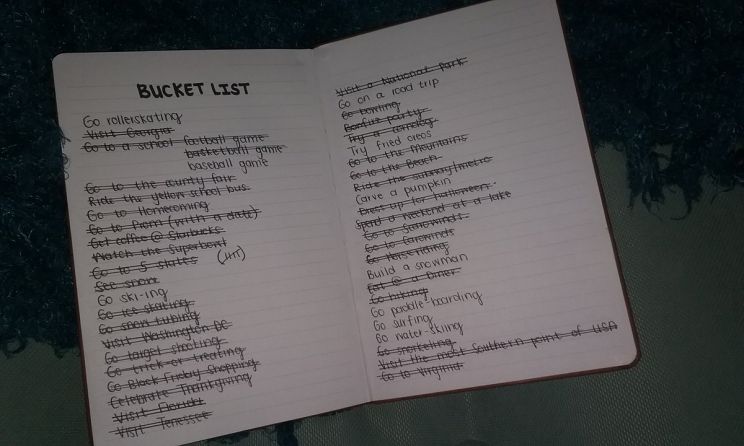 BUCKET LIST
Go rollerskating
Visit Georgia
Go to a school football game
basketball game
baseball game
Go to the county fair
Ride the yellow school bus
Go to Homecoming
Go to Prom (with a date)
Get coffee @ Starbucks
Watch the Superbowl
Go to 5 states
See snow
Go ski-ing
Go ice skating
Go snow tubing
Visit Washington DC
Go target shooting
Go trick or treating
Go Black Friday Shopping
Celebrate Thanksgiving
Visit Florida
Visit Tenessee
Visit a National Park
Go on a road trip
Go bowling
Bonfire party
Try a corndog
Try fried oreos
Go to the Mountains
Go to the Beach
Ride the subway/metro
Carve a pumpkin
Dress up for halloween
Spend a weekend at a lake
Go to
Go to Carowinds
Go Horseriding
Build a snowman
Eat @ a Diner
Go hiking
Go paddle-boarding
Go surfing
Go water-skiing
Go snorkeling
Visit the most Southern point of USA
Go to Virginia